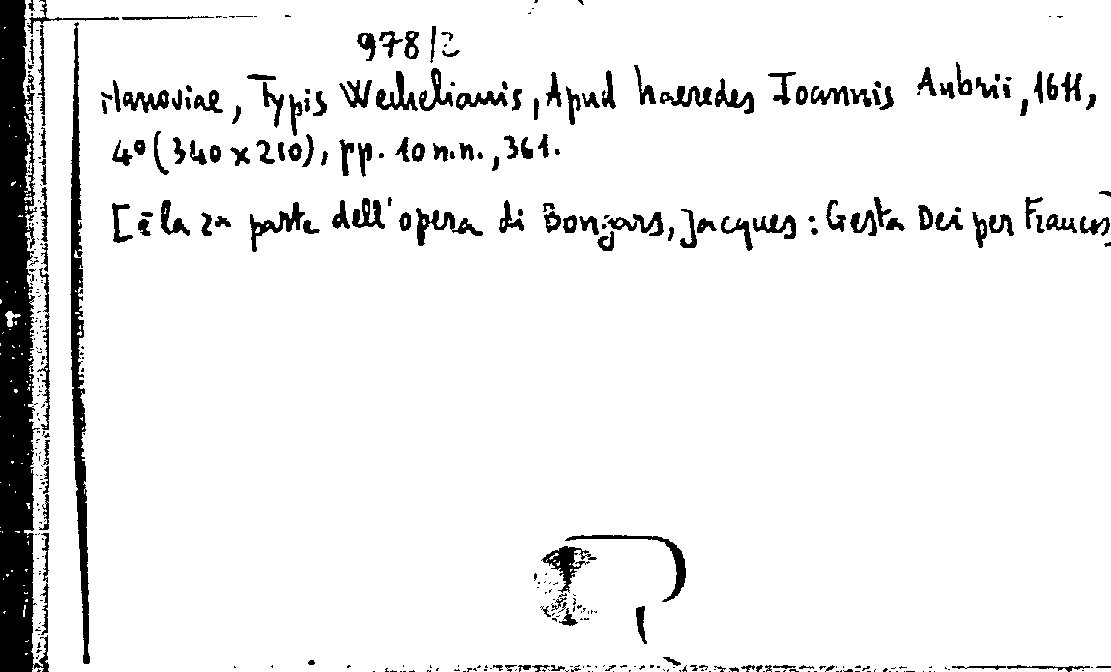 978/2
Hanoviae, Typis Wechelianis, Apud haeredes Ioannis Aubrii, 1611,
4° (340 x 210), pp. 10 n.n., 361.
[è la 2a parte dell'opera di Bongars, Jacques: Gesta Dei per Francos]